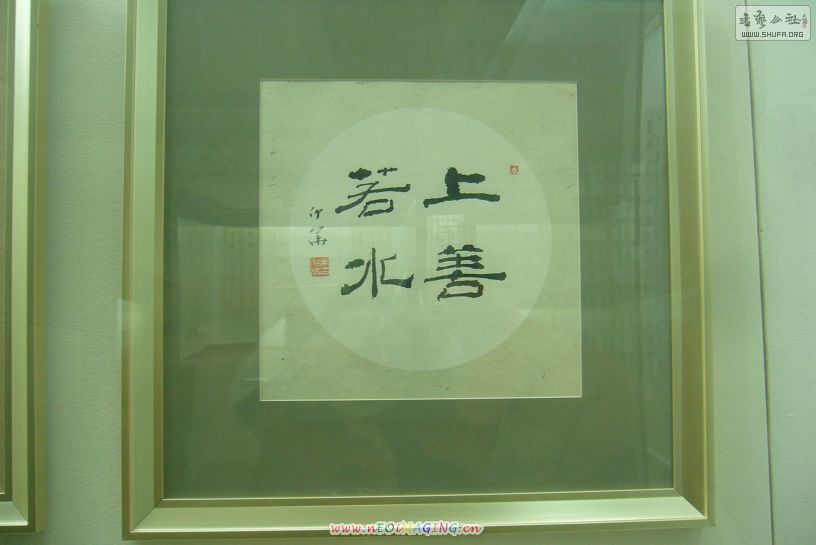 上善
若水
書藝公社
WWW.SHUFA.ORG
www.nEOiMAGING.cn